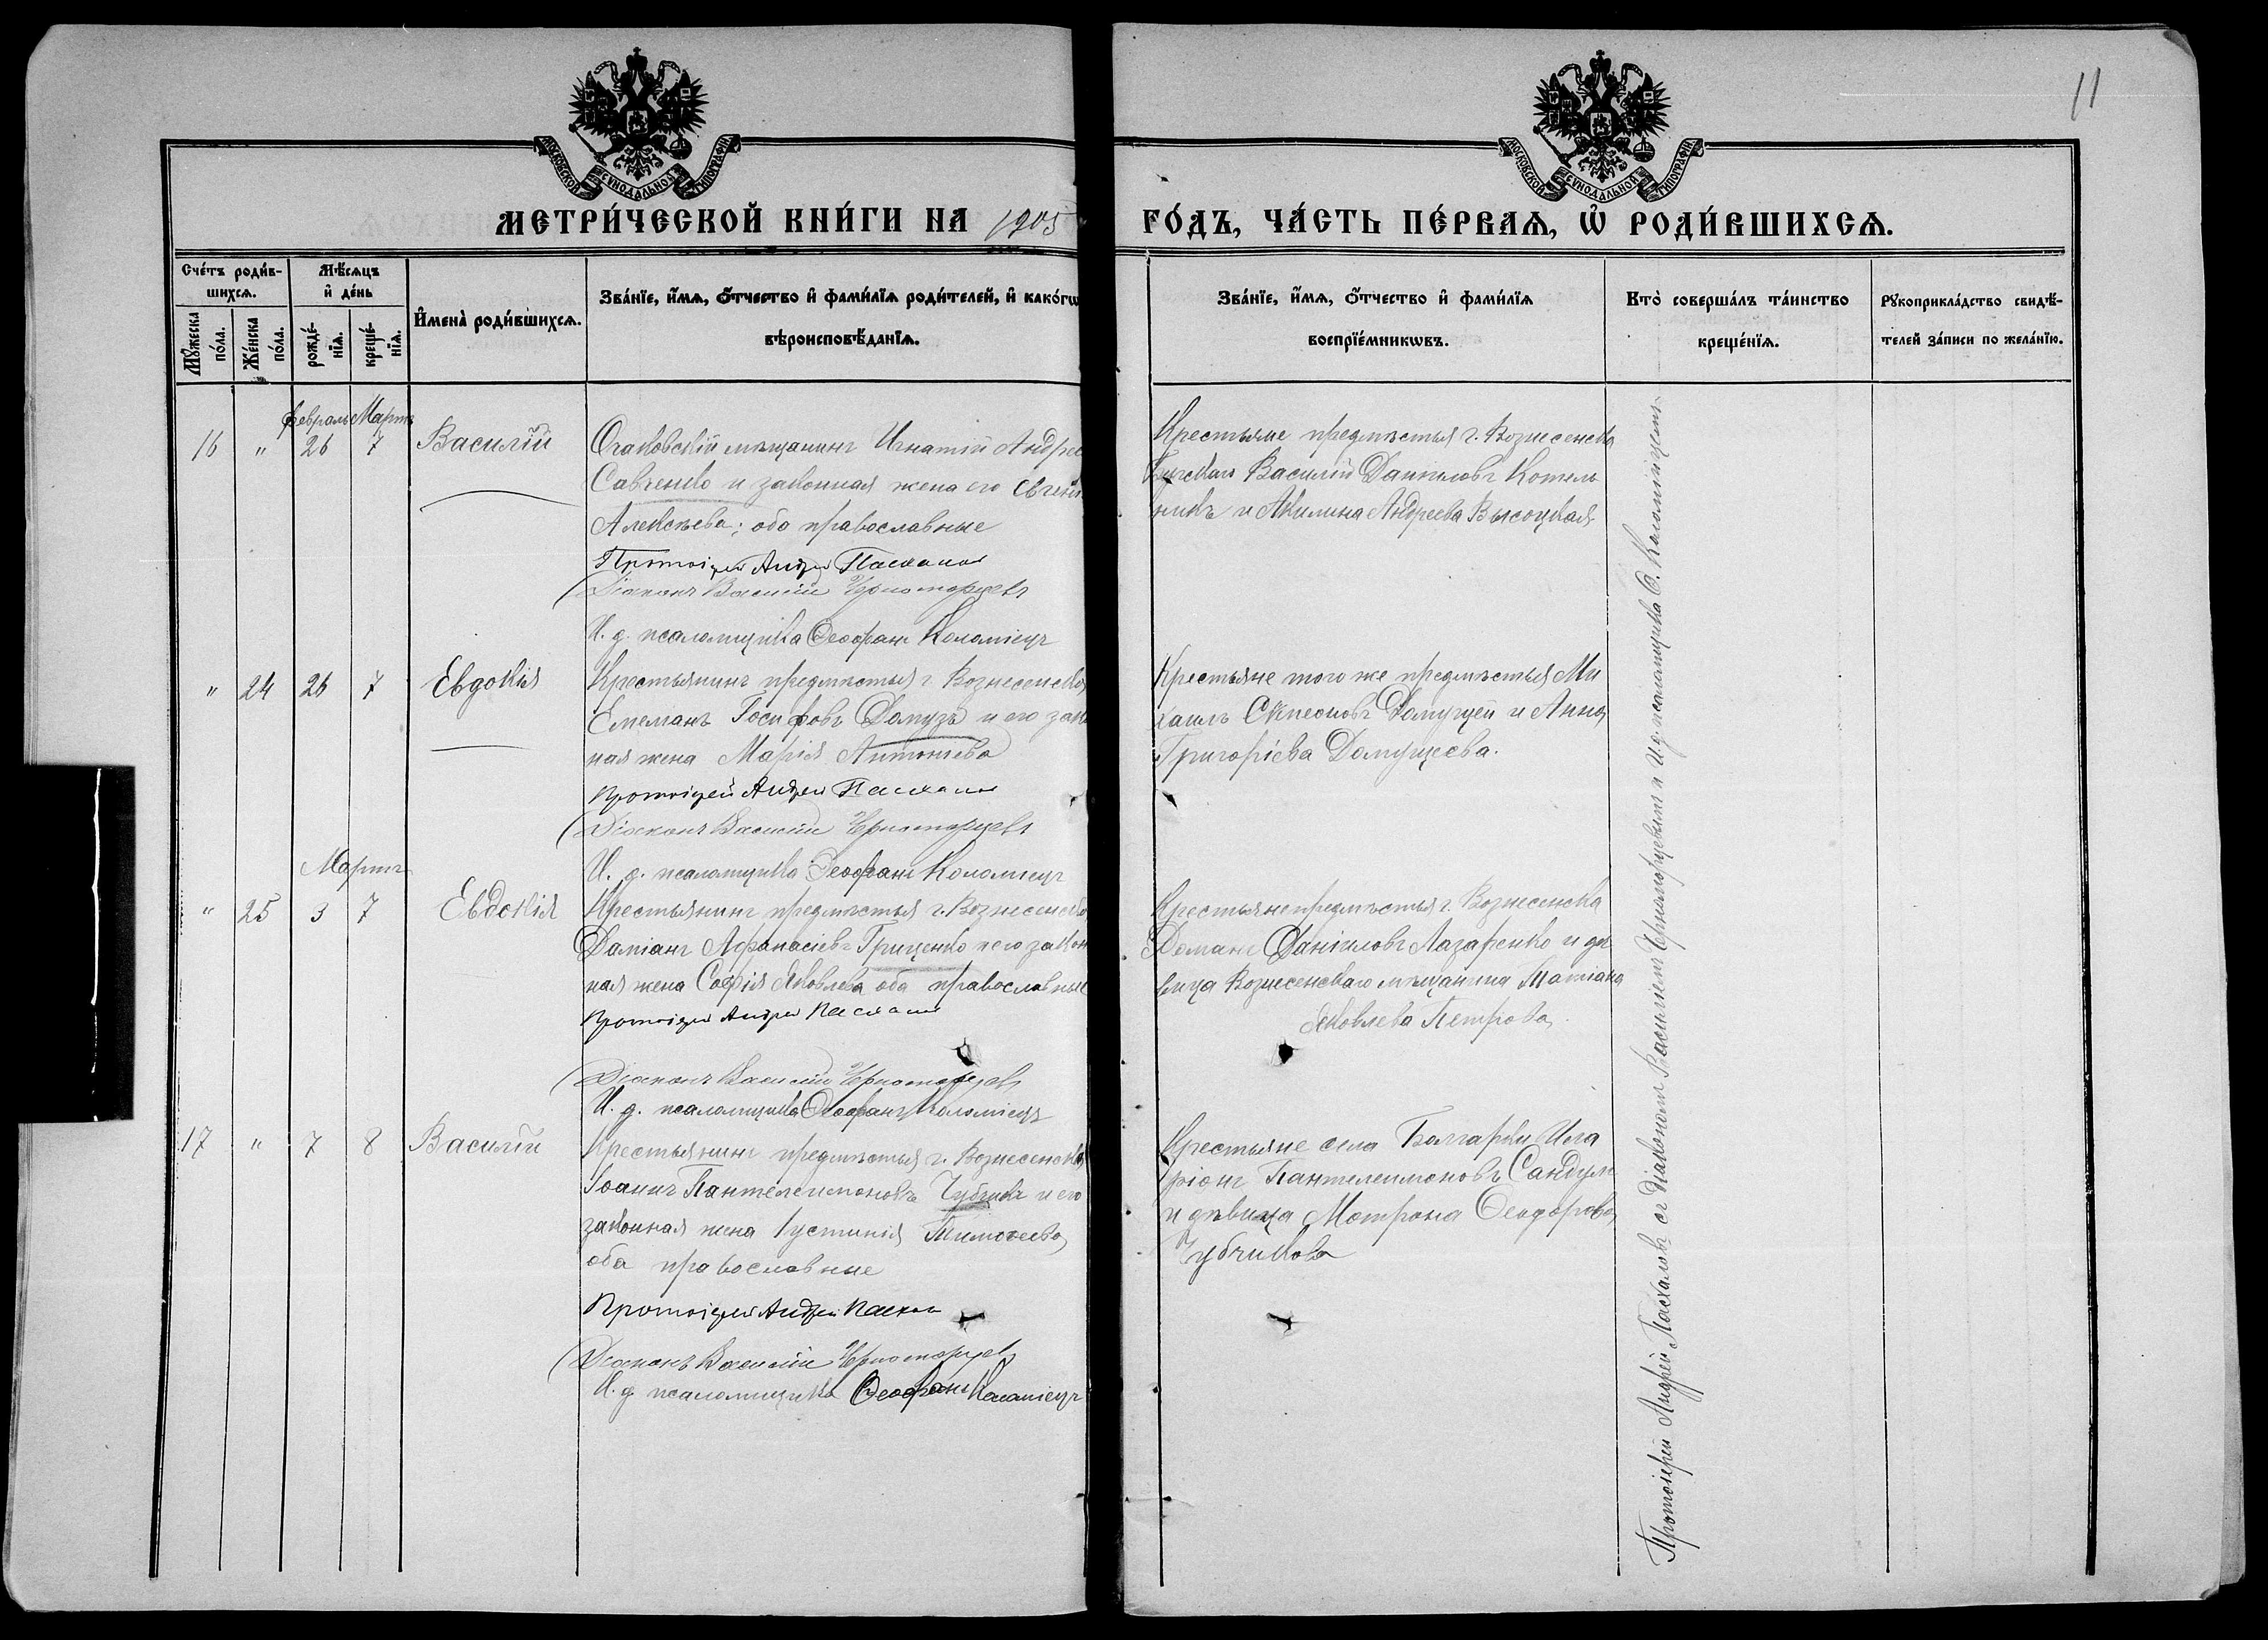 11
МОСКОВСКОЙ СѴНОДАЛЬНОЙ ТИПОГРАФІИ
МОСКОВСКОЙ СѴНОДАЛЬНОЙ ТИПОГРАФІИ
МЕТРИ́ЧЕСКОЙ КНИ́ГИ НА 1905 ГО́ДЪ, ЧА́СТЬ ПЕ́РВАЯ, Ѡ҆ РОДИ́ВШИХСЯ.
Сче́тъ роди́в-
шихся.
Мꙋ́жеска по́ла.
Же́нска по́ла.
Мѣ́сяцъ
и҆ де́нь
рожде́-
нїя.
креще́-
нїя.
И҆мена̀ роди́вшихся.
Зва́нїе, и҆́мя, ѻ҆́тчество и҆ фами́лїя роди́телей, и҆ како́гѡ
вѣроисповѣ́данїя.
Зва́нїе, и҆́мя, ѻ҆́тчество и҆ фами́лїя
воспрїе́мникѡвъ.
Кто̀ соверша́лъ та́инство
креще́нїя.
Рꙋкоприкла́дство свидѣ́-
телей за́писи по жела́нїю.
Февраль Мартъ
16 " 26 7 Василій
Очаковскій мѣщанинъ Игнатій Андрее
Савченко и законная жена его Евгенія
Алексѣева; оба православные
Протоіерей Андрей Пасхаловъ
Діаконъ Василій Черноморцевъ
И. д. псаломщика Ѳеофанъ Коломіецъ
Крестьяне предмѣстья г. Вознесенска
Василій Даніиловъ Котель
никъ и Акилина Андреева Высоцкая
" 24 26 7 Евдокія
Крестьянинъ предмѣстья г. Вознесенска
Емеліанъ Іосифовъ Домузъ и его закон
ная жена Марія Антоніева
Протоіерей Андрей Пасхаловъ
Діаконъ Василій Черноморцевъ
И. д. псаломщика Ѳеофанъ Коломіецъ
Крестьяне того же предмѣстья Ми
хаилъ Симеоновъ Домущей и Анна
Григоріева Домущеева.
Мартъ
" 25 3 7 Евдокія
Крестьянинъ предмѣстья г. Вознесенска
Даміанъ Афанасіевъ Гриценко и его закон
ная жена Софія Яковлева оба православные
Протоіерей Андрей Пасхаловъ
Діаконъ Василій Черноморцевъ
И. д. псаломщика Ѳеофанъ Коломіецъ
Крестьяне предмѣстья г. Вознесенска
Даніиловъ Лазаренко и дѣ
вица Вознесенскаго мѣщанина Татіана
Яковлева Петрова.
17 " 7 8 Василій
Крестьянинъ предмѣстья г. Вознесенска
Іоаннъ Пантелеимоновъ Чубчикъ и его
законная жена Іустинія Тимоѳеева
оба православные
Протоіерей Андрей Пасхал
Діаконъ Василій Черноморцевъ
И. д. псаломщика Ѳеофанъ Коломіецъ
Крестьяне села Болгарки Ила
ріонъ Пантелеимоновъ Сандул
и дѣвица Матрона Ѳеодорова
Чубчикова
Протоіерей Андрей Пасхаловъ съ Діакономъ Василіемъ Черноморцевымъ и И.д. псаломщика Ѳ. Коломійцемъ.